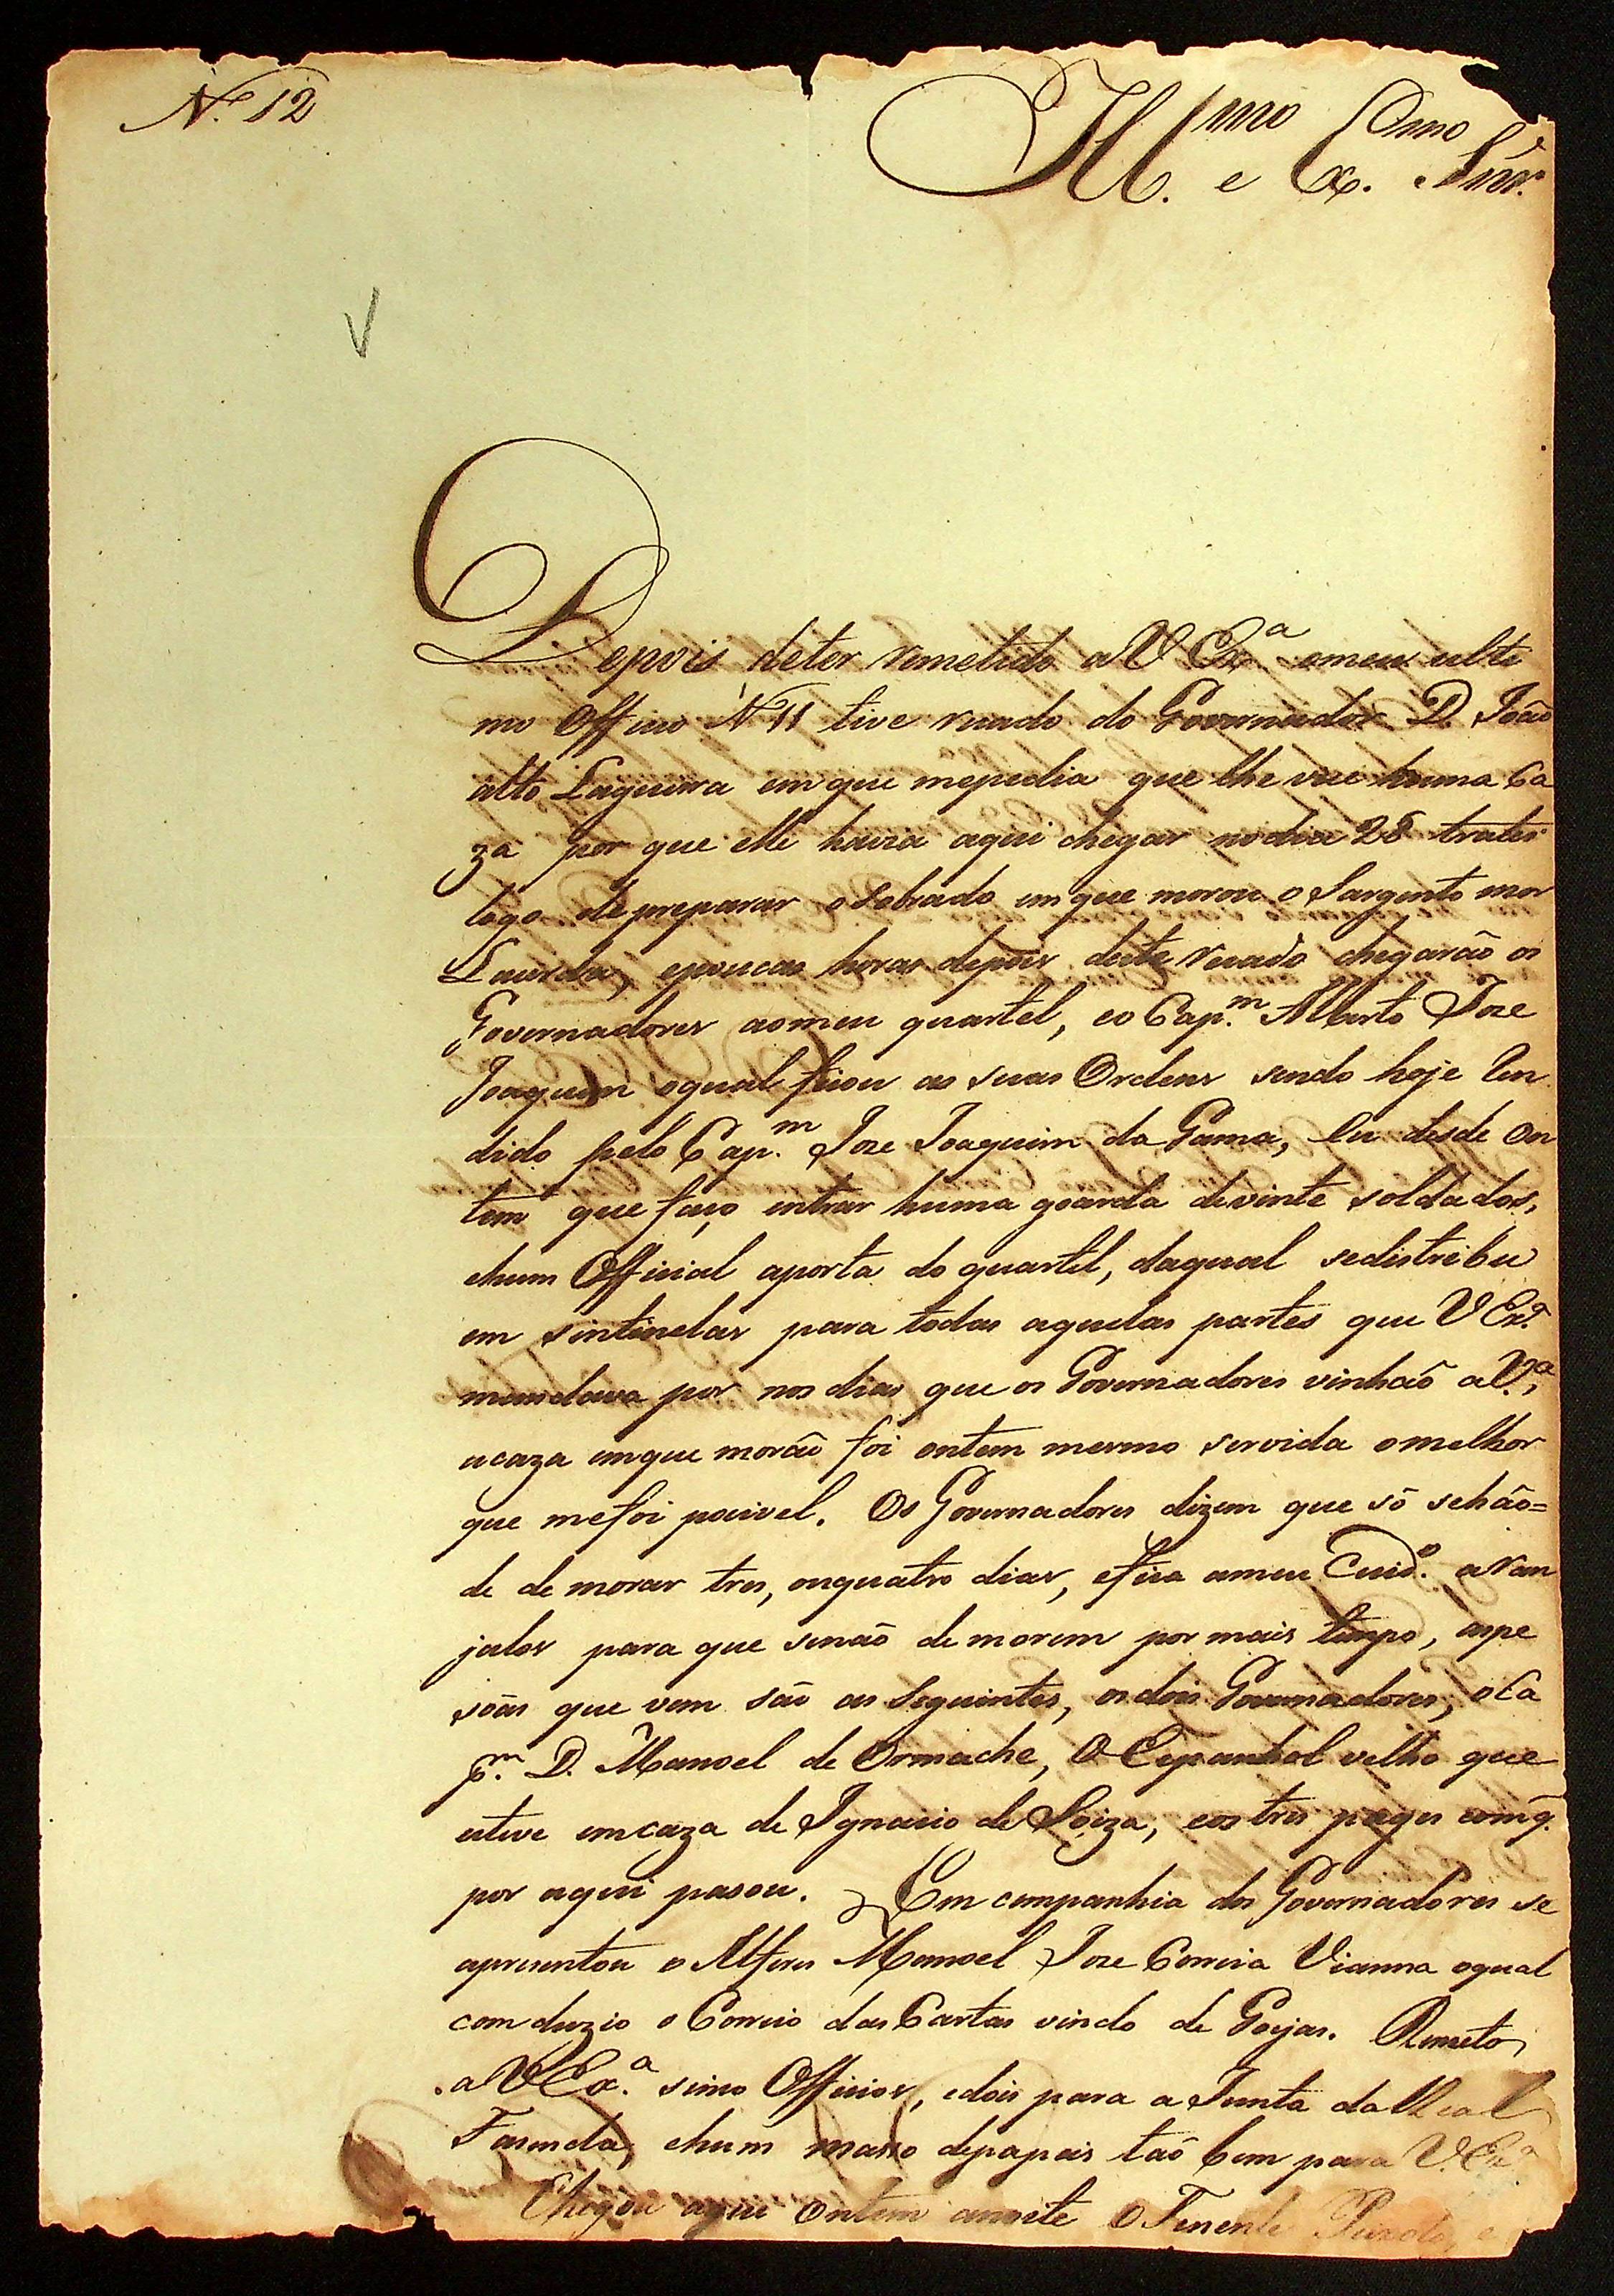 N.º 12
Ill.mo e Ex.mo Snr.
Depois deter remetido a V Ex.a omeu ulti
mo Officio N 11 tive recado do Governador D. João
alto Lagueira em que mepedia que lhe vise huma Ca
za por que elle havia aqui chegar nodia 28 tratei
logo de preparar o Sobrado em que morou o Sargento mor
Lacerda, epoucas horas depois deste recado chegarão os
Governadores aomeu quartel, eo Cap.m Alberto Joze
Joaquim oqual ficou as suas Ordens sendo hoje Ren
dido pelo Cap.m Joze Joaquim da Gama, Eu desde On
tem que faço entrar huma goarda devinte soldados,
ehum Official aporta do quartel, daqual sedistribu
em sintinelas para todas aquelas partes que V Ex.a
mandava por nos dias que os Governadores vinhão a V.a,
acaza emque morão foi ontem mesmo servida omelhor
que mefoi pocivel. Os Governadores dizem que só sehão=
de de morar tres, ouquatro dias, efica ameu Cuid.o aran
jalos para que senão demorem por mais tempo, aspe
sôas que vem são as Seguintes, os dois Governadores, o Ca
p.m D. Manoel de Ormache, O Espanhol velho que
esteve emcaza de Ignacio de Soiza, eos tres pages comq̃
por aqui pasou. Em companhia dos Governadores se
aprezentou o Alferes Manoel Joze Correia Vianna oqual
comduzio o Correio das Cartas vindo de Goyas. Remeto
a V Ex.a sinco Officios, edois para a Junta da Real
Fasenda, ehum masso depapeis tão bem para V. Ex.a
Chegou aqui Ontem anoite O Tenente Peixoto, e